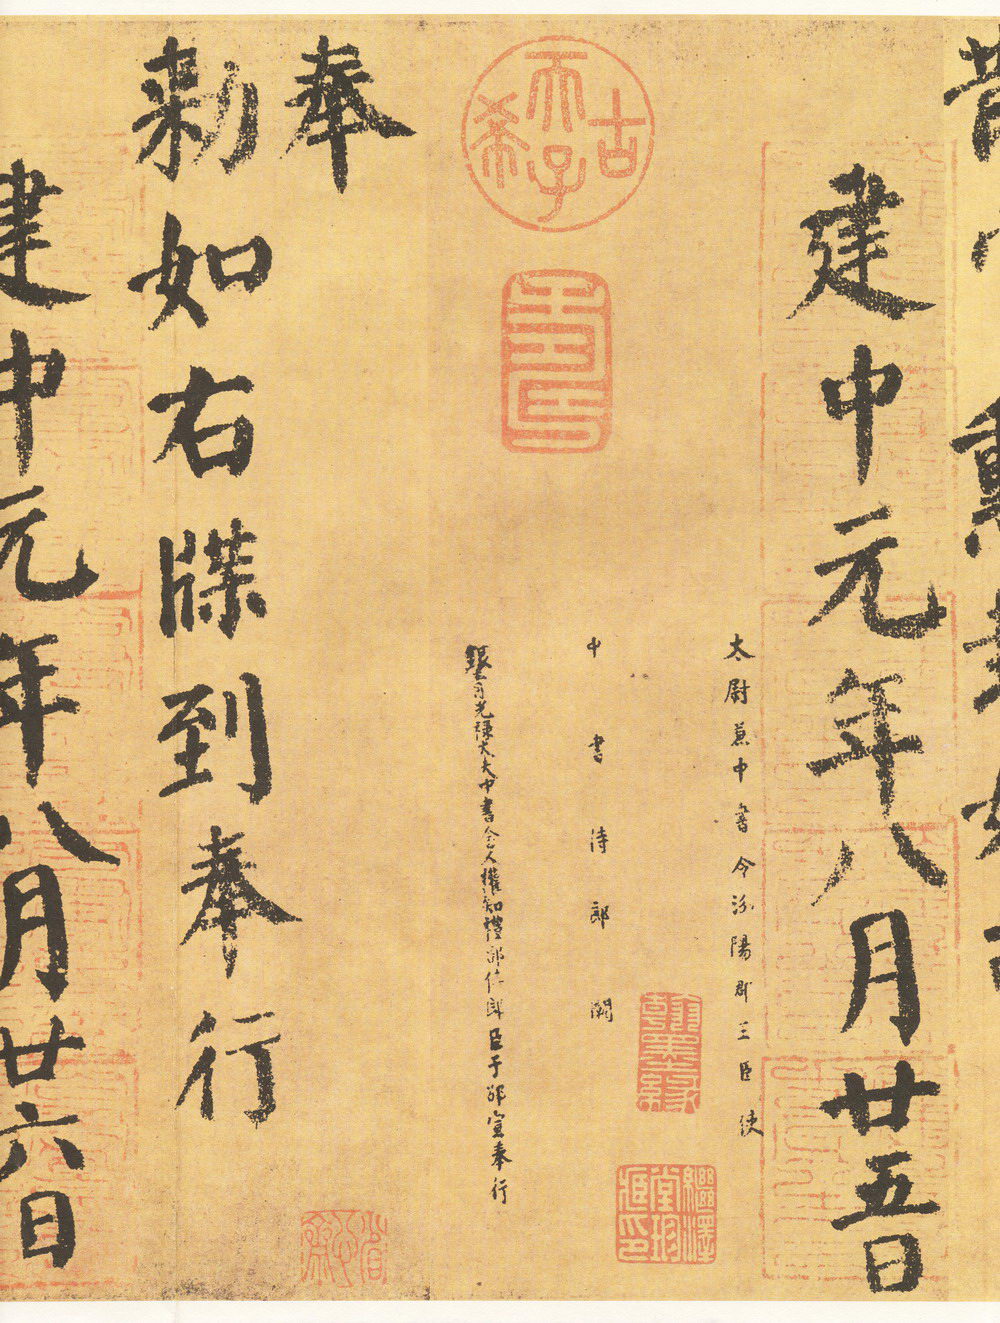 勳封如
建中元年八月廿五日
太尉兼中書令汾陽郡王臣使
中書侍郎闕
銀青光祿大夫中書舍人權知禮部侍郎臣于邵宣奉行
奉
勅如右牒到奉行
建中元年八月廿六日
古希天子
壽